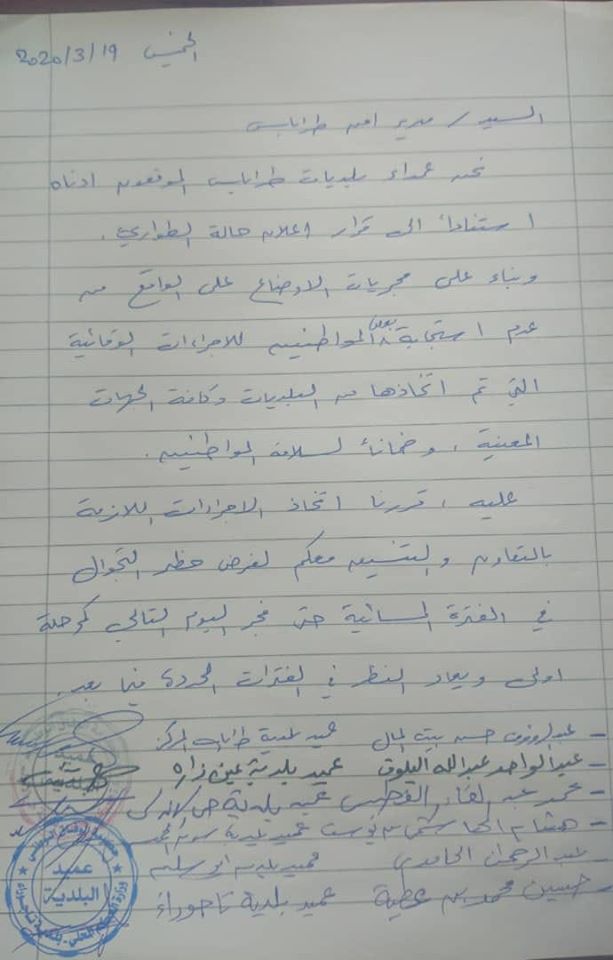 الخميس 2020/3/19
السيد / مدير امن طرابلس
نحن عمداء بلديات طرابلس الموقعون ادناه
استناداً الى قرار اعلان حالة الطوارئ .
وبناء على مجريات الاوضاع على الواقع من
عدم استجابة بعض المواطنين للاجراءات الوقائية
التي تم اتخاذها من البلديات وكافة الجهات
المعنية ، وضماناً لسلامة المواطنين .
عليه ، قررنا اتخاذ الاجراءات اللازمة
بالتعاون والتنسيق معكم لفرض حظر التجوال
في الفترة المسائية حتى فجر اليوم التالي كمرحلة
اولى ويعاد النظر في الفترات المحددة فيما بعد .
- عبدالرؤوف حسن بيت المال عميد بلدية طرابلس المركز
- عبدالواحد عبدالله البلوق عميد بلدية عين زاره
- محمد عبد عميد بلدية حي الاندلس
- هشام بن يوسف عميد بلدية سوق الجمعة
- عبدالرحمن الحامدي عميد بلدية ابوسليم
- حسين محمد بن عطية عميد بلدية تاجوراء
عميد
البلدية